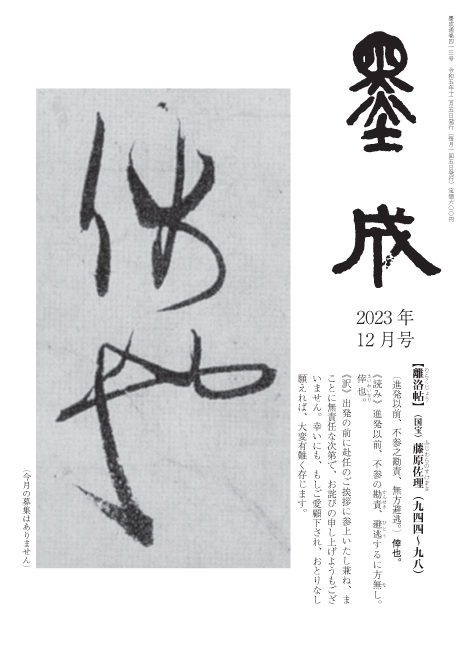 墨成通巻四一三号　令和五年十二月五日発行（毎月一回五日発行）定価六〇〇円
墨成
2023年
12月号
【離洛帖】（国宝）藤原佐理（九四四～九九八）
（進発以前、不参之勘責、無方避逃。）倖也。
《読み》進発以前、不参の勘責、避逃するに方無し。
倖也。
《訳》出発の前に赴任のご挨拶に参上いたし兼ね、ま
ことに無責任な次第で、お詫びの申し上げようもござ
いません。幸いにも、もしご愛顧下され、おとりなし
願えれば、大変有難く存じます。
倖也
（今月の募集はありません）